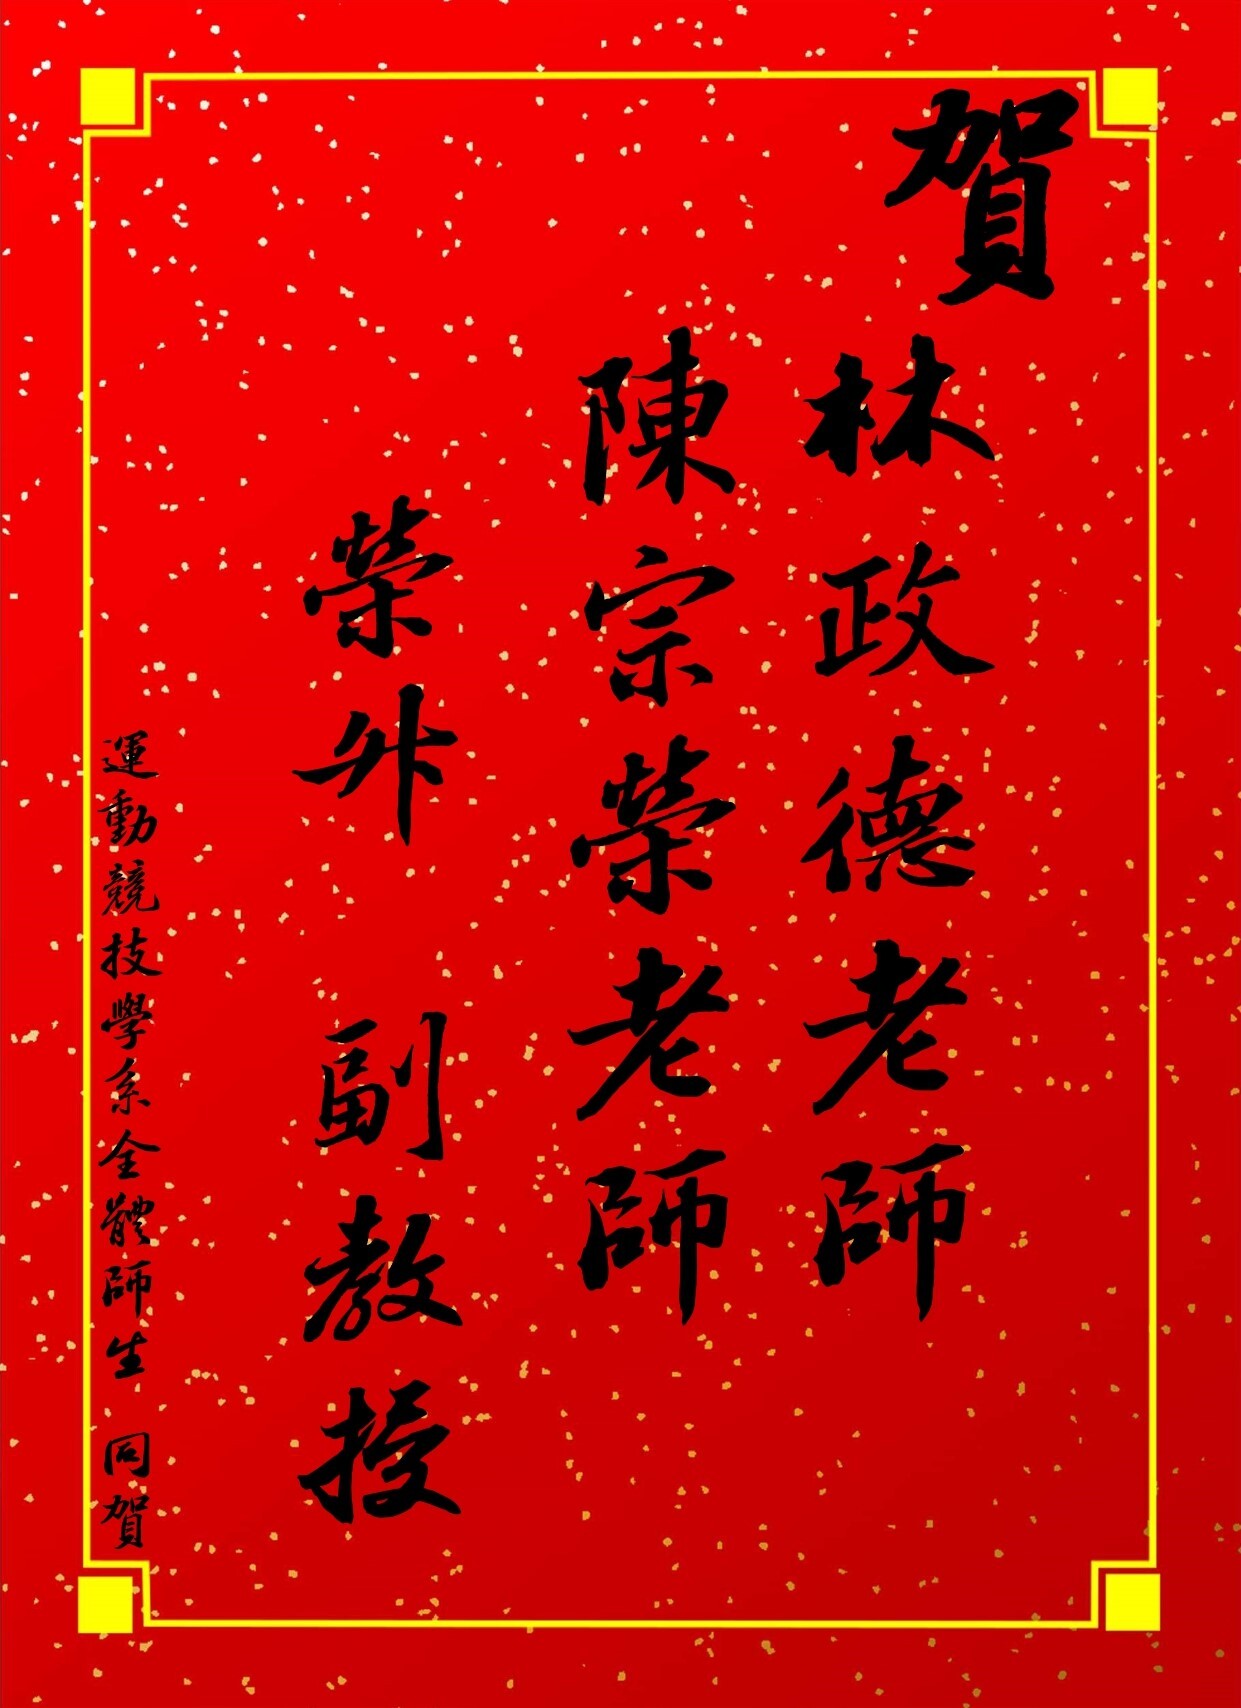 賀
林政德老師
陳宗榮老師
榮升 副教授
運動競技學系全體師生 同賀